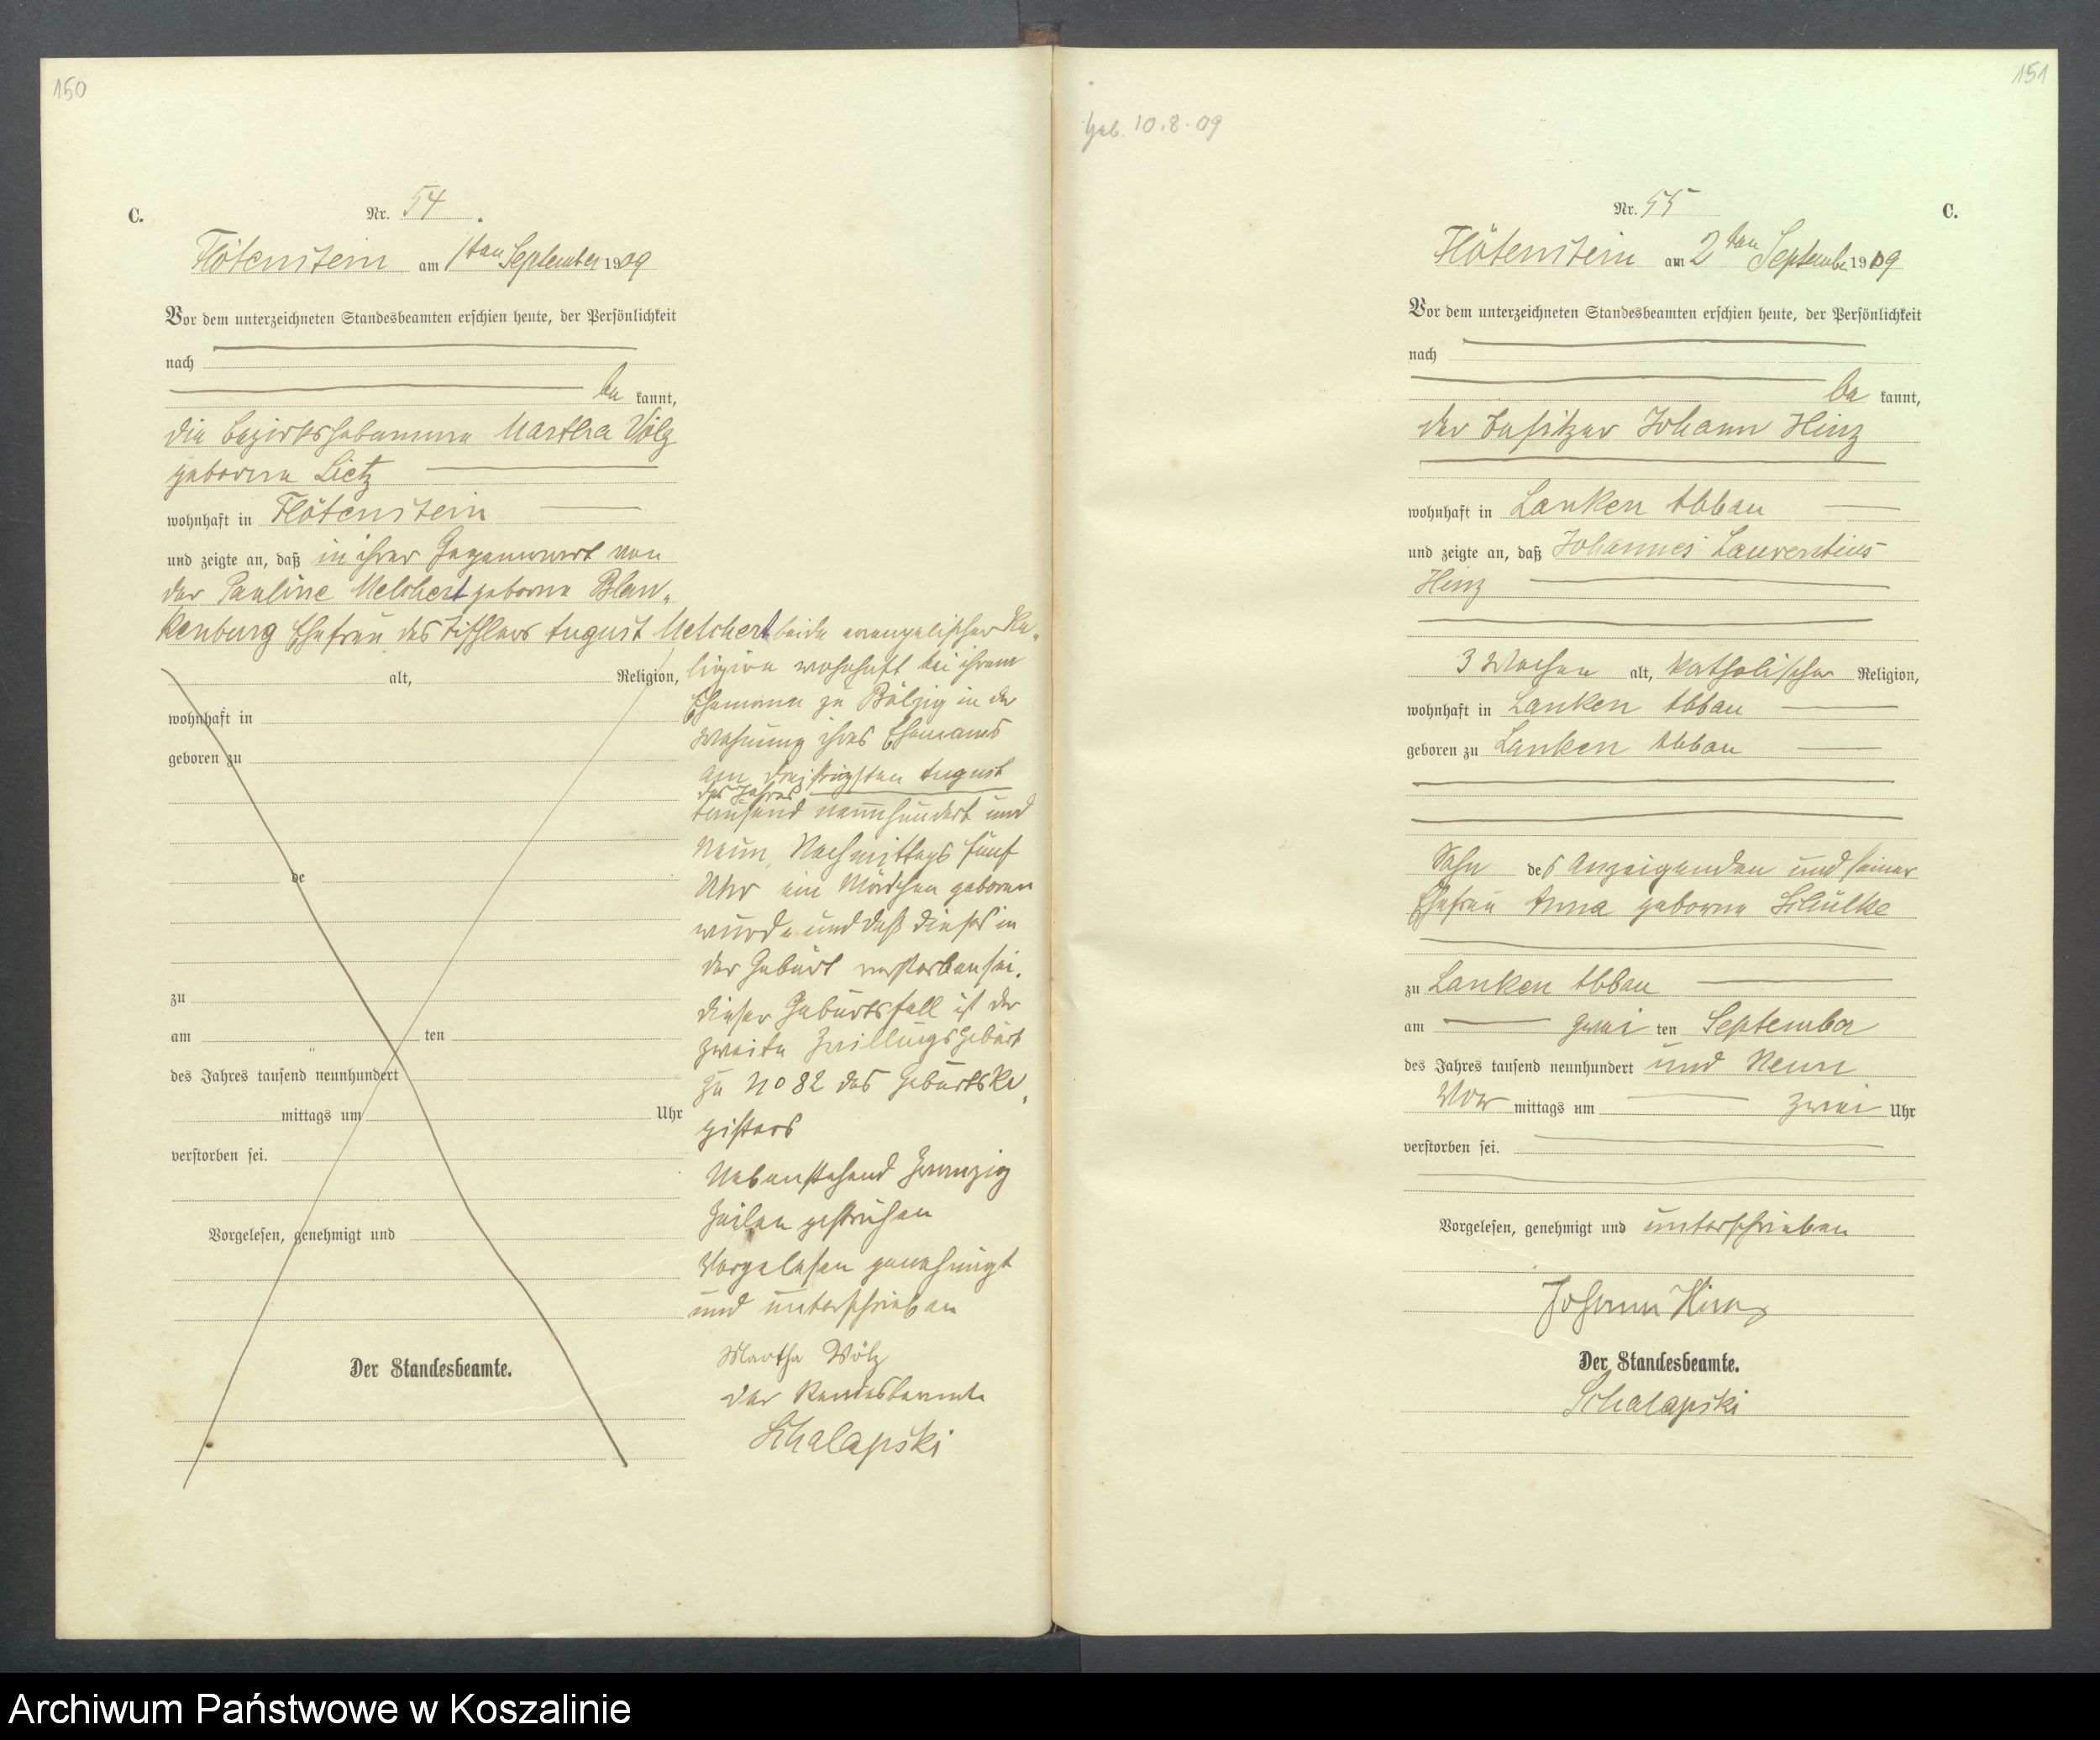 150
C.
Nr. 54.
Flötenstein am 1ten September 1909
Vor dem unterzeichneten Standesbeamten erschien heute, der Persönlichkeit
nach
be kannt,
die Bezirkshebamme Martha Völz
geborne Lietz
wohnhaft in Flötenstein
und zeigte an, daß in ihrer Gegenwart von
der Pauline Melchert geborne Blan-
kenburg Ehefrau des Tischlers August Melchert beide evangelischer Re-
alt, Religion,
ligion wohnhaft bei ihrem
Ehemanne zu Bölzig in der
wohnhaft in
Wohnung ihres Ehemanns
geboren zu
am dreizigsten August
des Jahres
tausend neunhundert und
Neun, Nachmittags fünf
de
Uhr ein Mädchen geboren
wurde und daß dieses in
der Geburt verstorben sei.
zu
dieser Geburtsfall ist der
am ten
zweite Zwillingsgeburt
des Jahres tausend neunhundert
zu No 82 des Geburtsre-
mittags um Uhr
gisters
verstorben sei.
Nebenstehend zwanzig
Zeilen gestrichen
Vorgelesen, genehmigt und
Vorgelesen genehmigt
und unterschrieben
Martha Völz
Der Standesbeamte.
der Standesbeamte
Schalapski
151
Geb. 10.8.09
Nr. 55
C.
Flötenstein am 2ten September 1909
Vor dem unterzeichneten Standesbeamten erschien heute, der Persönlichkeit
nach
be kannt,
der Besitzer Johann Hinz
wohnhaft in Lanken Abbau
und zeigte an, daß Johannes Laurentius
Hinz
3 Wochen alt, katholischer Religion,
wohnhaft in Lanken Abbau
geboren zu Lanken Abbau
Sohn des Anzeigenden und seiner
Ehefrau Anna geborne Schülke
zu Lanken Abbau
am zwei ten September
des Jahres tausend neunhundert und Neun
Vor mittags um zwei Uhr
verstorben sei.
Vorgelesen, genehmigt und unterschrieben
Johann Hinz
Der Standesbeamte.
Schalapski
Archiwum Państwowe w Koszalinie